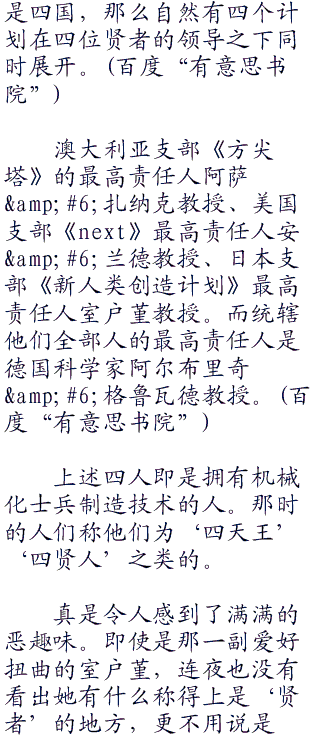 是四国，那么自然有四个计
划在四位贤者的领导之下同
时展开。(百度“有意思书
院”)
澳大利亚支部《方尖
塔》的最高责任人阿萨
&amp;#6;扎纳克教授、美国
支部《next》最高责任人安
&amp;#6;兰德教授、日本支
部《新人类创造计划》最高
责任人室户堇教授。而统辖
他们全部人的最高责任人是
德国科学家阿尔布里奇
&amp;#6;格鲁瓦德教授。(百
度“有意思书院”)
上述四人即是拥有机械
化士兵制造技术的人。那时
的人们称他们为‘四天王’
‘四贤人’之类的。
真是令人感到了满满的
恶趣味。即使是那一副爱好
扭曲的室户堇，连夜也没有
看出她有什么称得上是‘贤
者’的地方，更不用说是